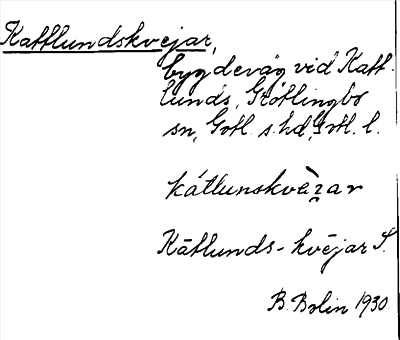 Kattlundskvejar,
bygdeväg vid Katt-
lunds, Grötlingbo
sn, Gotl. s. hd, Gotl. l.
Kattlunds-kvejar S.
B. Bolin 1930.